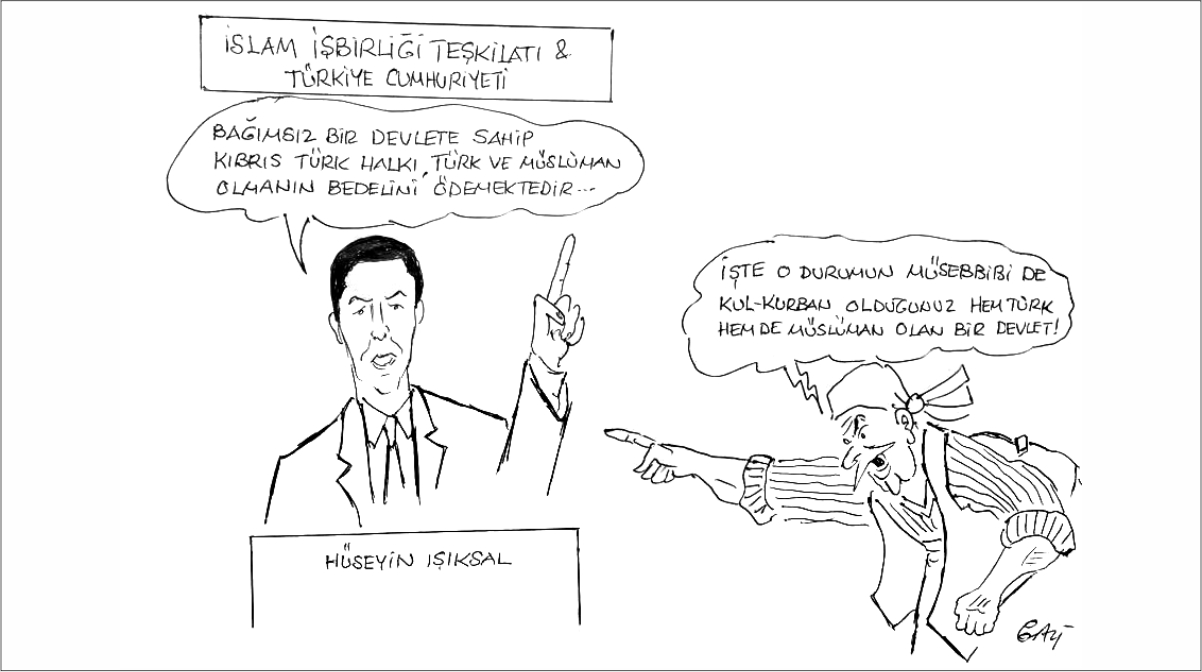 İSLAM İŞBİRLİĞİ TEŞKİLATI &
TÜRKİYE CUMHURİYETİ
BAĞIMSIZ BİR DEVLETE SAHİP
KIBRIS TÜRK HALKI, TÜRK VE MÜSLÜMAN
OLMANIN BEDELİNİ ÖDEMEKTEDİR...
İŞTE O DURUMUN MÜSEBBİBİ DE
KUL-KURBAN OLDUĞUNUZ HEM TÜRK
HEM DE MÜSLÜMAN OLAN BİR DEVLET!
HÜSEYİN IŞIKSAL